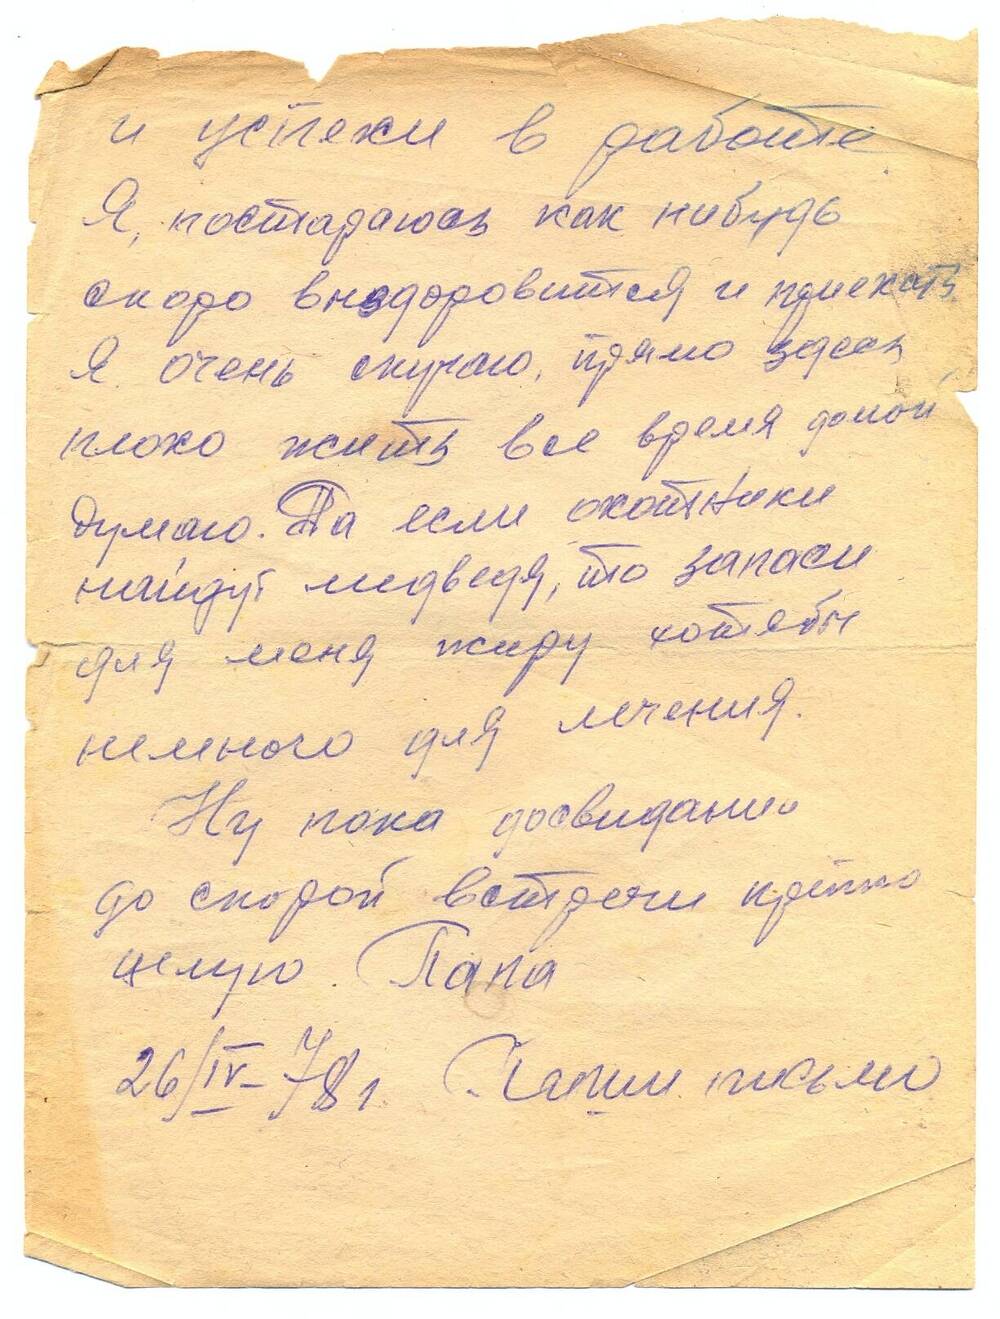 и успехи в работе.
Я, постараюсь как нибудь
скоро выздоровится и приехать
Я очень скучаю, прямо здесь
плохо жить все время домой
думаю. Да если охотники
найдут медведя, то запаси
для меня жиру хотябы
немного для лечения.
Ну пока досвидание
до скорой встречи крепко
целую. Папа
26/IV-78 г. Папин письмо